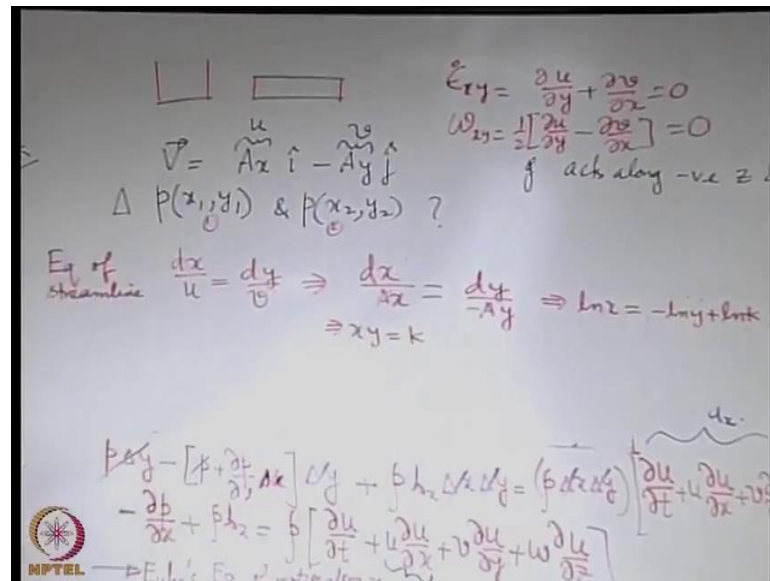 ε̇xy = ∂u/∂y + ∂v/∂x = 0
ωxy = ½[∂u/∂y − ∂v/∂x] = 0
u v
V⃗ = Ax î − Ay ĵ
g acts along -ve z
Δ p(x₁,y₁) & p(x₂,y₂) ?
① ②
Eq of streamline dx/u = dy/v ⇒ dx/Ax = dy/-Ay ⇒ lnx = -lny + lnk
⇒ xy = k
pΔy − [p + ∂p/∂x Δx] Δy + ρbx Δx Δy = (ρ Δx Δy) [∂u/∂t + u ∂u/∂x + v
− ∂p/∂x + ρbx = ρ[∂u/∂t + u ∂u/∂x + v ∂u/∂y + w ∂u/∂z]
NPTEL